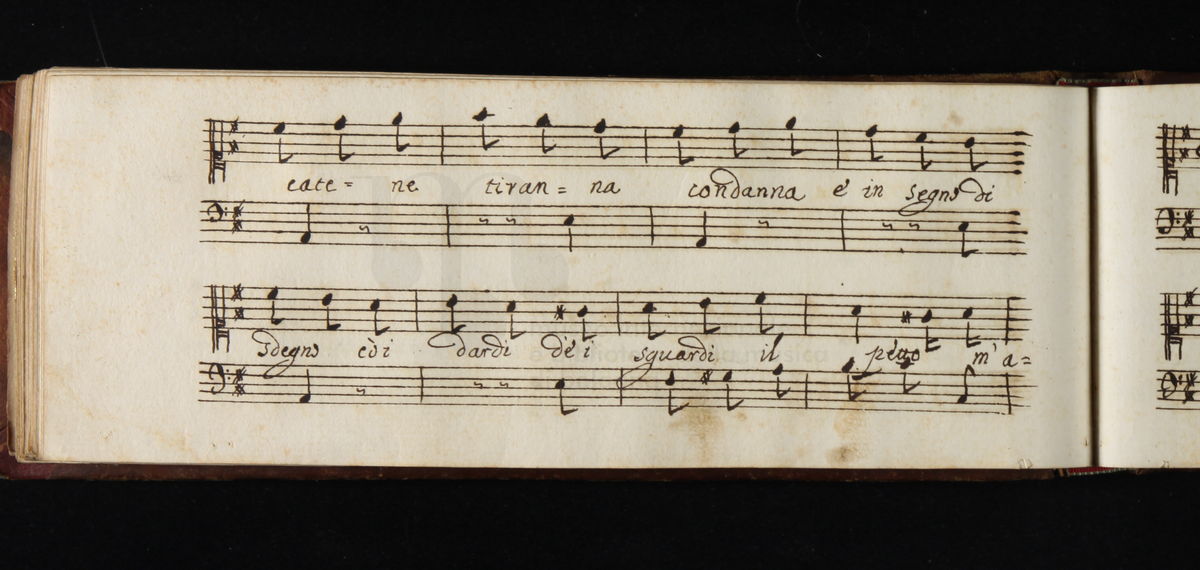 cate = ne tiran = na condanna e' in segno di
sdegno coi dardi de' i sguardi il petto m' a =